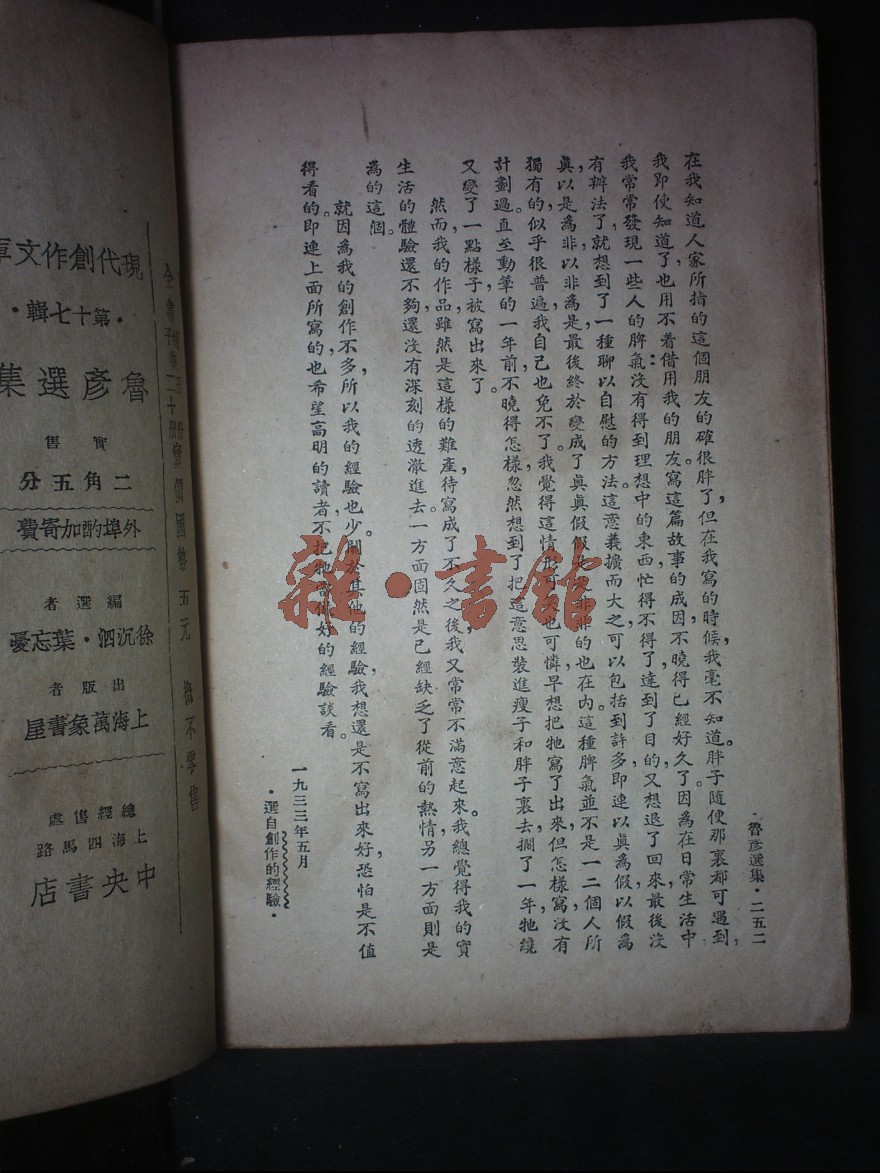 ·魯彥選集·二五二
在我知道人家所指的這個朋友的確很胖了，但在我寫的時候，我毫不知道。胖子隨便那裏都可遇到，
我即使知道了，也用不着借用我的朋友。寫這篇故事的成因，不曉得已經好久了。因為在日常生活中
我常常發現一些人的脾氣：沒有得到理想中的東西，忙得不得了，達到了目的，又想退了回來，最後沒
有辦法了，就想到了一種聊以自慰的方法。這意義擴而大之，可以包括到許多，即連以眞為假，以假為
眞，以是為非，以非為是，最後終於變成了眞眞假假，是是非非的也在內。這種脾氣並不是一二個人所
獨有的，似乎很普遍，我自己也免不了。我覺得這情形可笑也可憐，早想把牠寫了出來，但怎樣寫，沒有
計劃過。直至動筆的一年前，不曉得怎樣，忽然想到了把這意思裝進瘦子和胖子裏去，擱了一年，牠纔
又變了一點樣子，被寫出來了。
然而，我的作品雖然是這樣的難產，待寫成了不久之後，我又常常不滿意起來。我總覺得我的實
生活的體驗還不夠，還沒有深刻的透澈進去。一方面固然是已經缺乏了從前的熱情，另一方面則是
為的這個。
就因為我的創作不多，所以我的經驗也少。關於其他的經驗，我想還是不寫出來好，恐怕是不值
得看的。即連上面所寫的，也希望高明的讀者不把牠當做好的經驗談看。
一九三三年五月
·選自創作的經驗·
現代創作文庫
·第十七輯·
魯彥選集
實售
二角五分
外埠酌加寄費
編選者
徐沉泗·葉忘憂
出版者
上海萬象書屋
總經售處
上海四馬路
中央書店
雜·書館